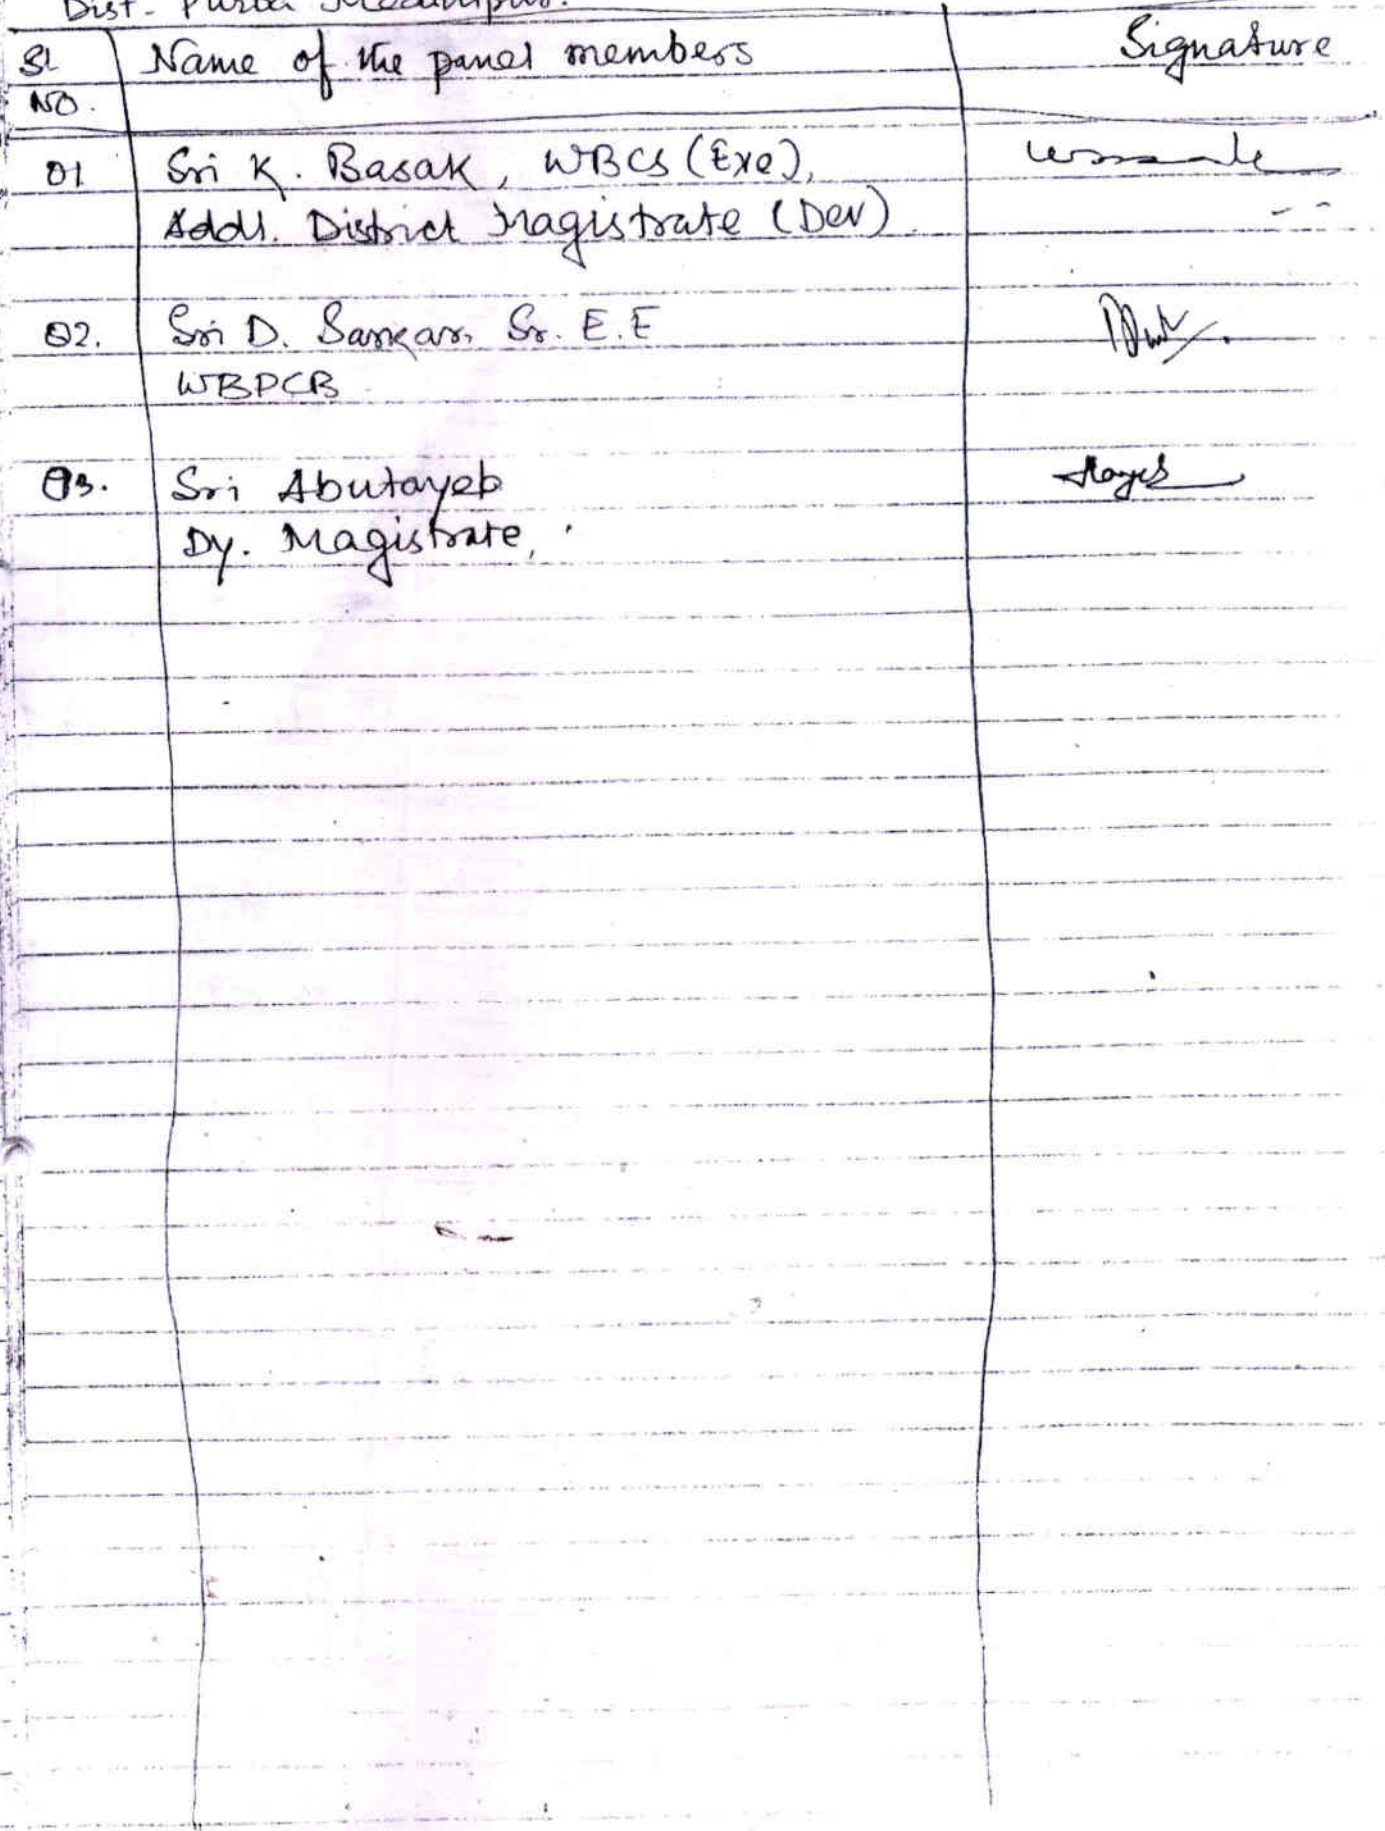 Dist- Purba Medinipur.
Sl Name of the panel members Signature
NO.
01 Sri K. Basak, WBCS (Exe),
Addl. District Magistrate (Dev)
02. Sri D. Sarkar, Sr. E.E
WBPCB
03. Sri Abutayeb
Dy. Magistrate,